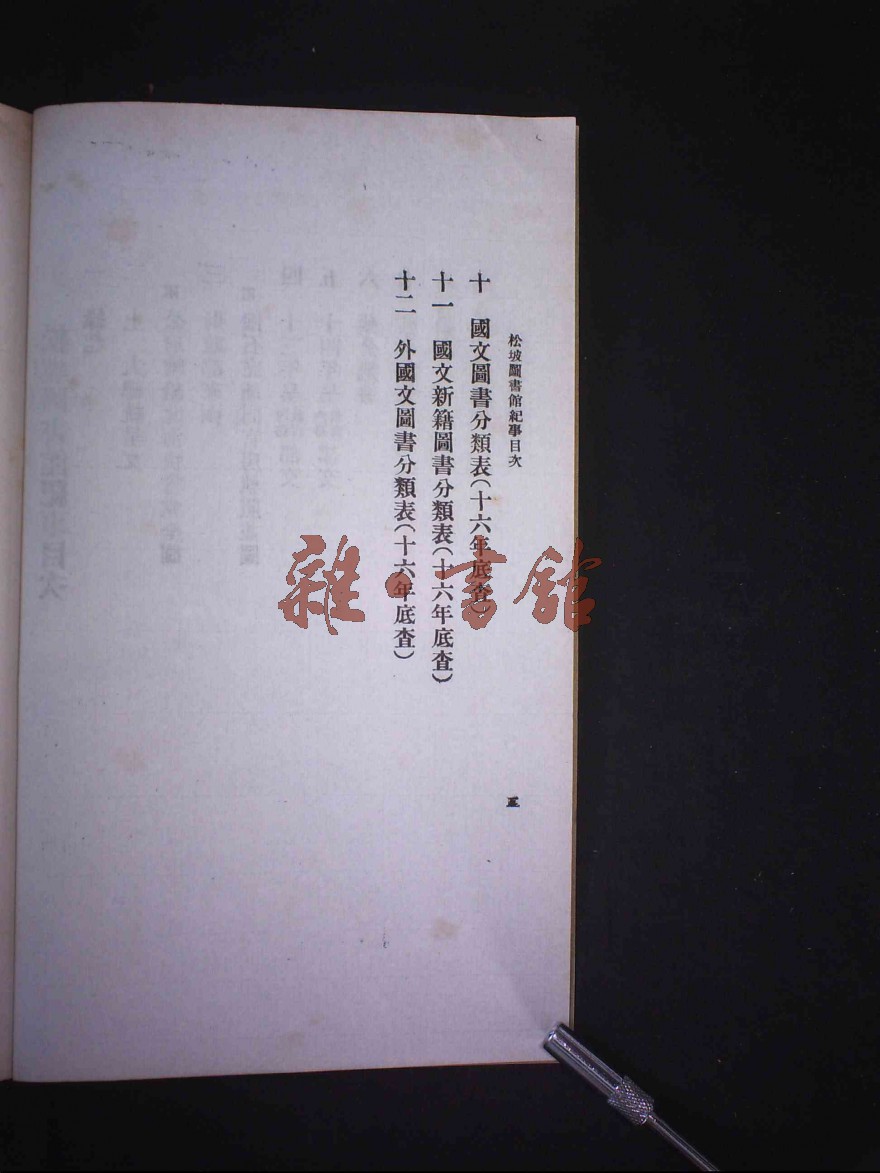 松坡圖書館紀事目次
十　國文圖書分類表(十六年底查)
十一　國文新籍圖書分類表(十六年底查)
十二　外國文圖書分類表(十六年底查)
三
雜·書館